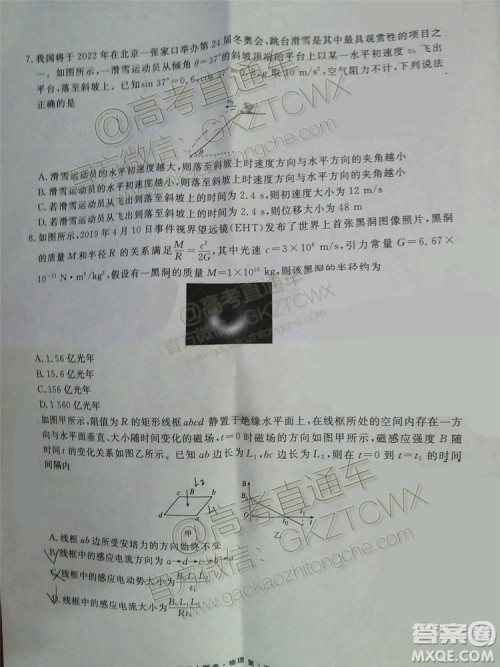 7.我国将于 2022 年在北京—张家口举办第 24 届冬奥会,跳台滑雪是其中最具观赏性的项目之
一。如图所示,一滑雪运动员从倾角 θ=37°的斜坡顶端的平台上以某一水平初速度 飞出
平台,落至斜坡上。已知sin 37°=0.6,cos 37° 取10 m/s²,空气阻力不计,下列说法
正确的是
θ
A.滑雪运动员的水平初速度越大,则落至斜坡上时速度方向与水平方向的夹角越小
B.滑雪运动员的水平初速度越大,则落至斜坡上时速度方向与水平方向的夹角越大
C.若滑雪运动员从飞出到落至斜坡上的时间为 2.4 s,则初速度大小为 12 m/s
D.若滑雪运动员从飞出到落至斜坡上的时间为 2.4 s,则位移大小为 48 m
8.如图所示,2019 年 4 月 10 日事件视界望远镜(EHT)发布了世界上首张黑洞图像照片,黑洞
的质量 M 和半径 R 的关系满足M/R=c²/2G,其中光速 c=3×10⁸ m/s,引力常量 G=6.67×
10⁻¹¹ N·m²/kg²,假设有一黑洞的质量 M=1× kg,则该黑洞的半径约为
A.1.56 亿光年
B.15.6 亿光年
C.156 亿光年
D.1 560 亿光年
如图甲所示,阻值为 R 的矩形线框 abcd 静置于绝缘水平面上,在线框所处的空间内存在一方
向与水平面垂直、大小随时间变化的磁场,t=0时磁场的方向如图甲所示,磁感应强度 B 随
时间 t 变化的关系如图乙所示。已知 ab 边长为 L₁,bc 边长为 L₂,则在 t=0 到 t=t₁ 的时间
间隔内
L₂
c B b
d a
甲
B
B₀
0 t₀ t₁ t
乙
A.线框 ab 边所受安培力的方向始终不变
B.线框中的感应电流方向为 a→d→
线框中的感应电动势大小为B₀L₁L₂/t₀
D.线框中的感应电流大小为B₀L₁L₂/t₀R
@高考直通车
官方微信:GKZTCWX
www.gaokaozhitongche.com
答案圈
MXQE.COM